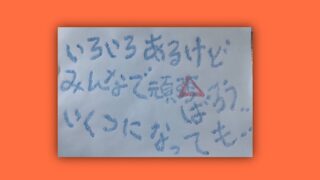 いろいろあるけど
みんなで頑張
ばろう‥
いくつになっ
ても…